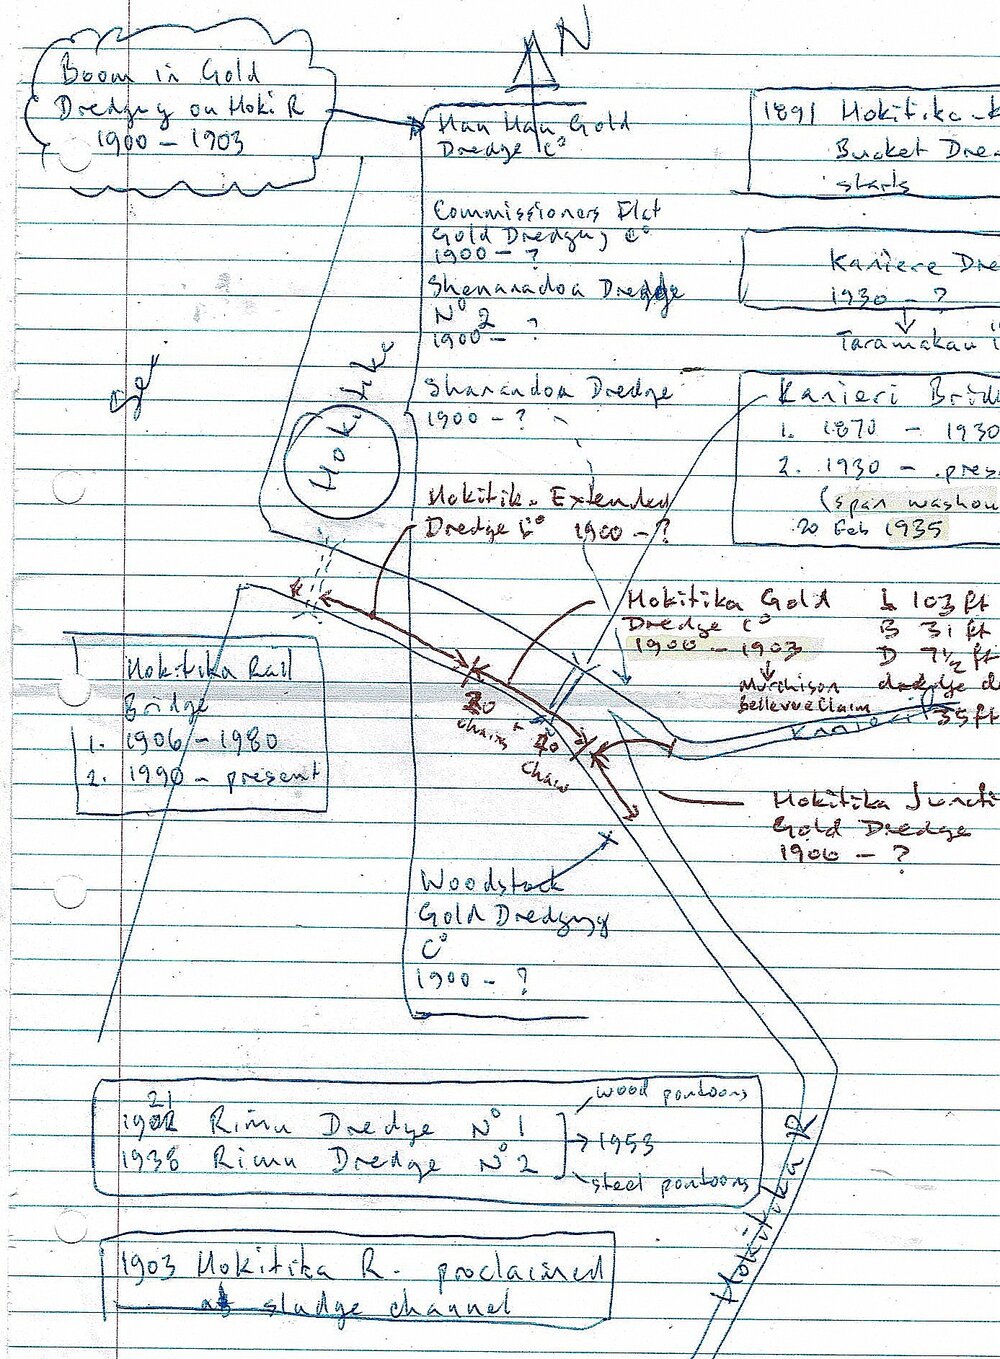 N
Boom in Gold
Dredging on Hoki R
1900 – 1903
Hau Hau Gold
Dredge Cº
Commissioners Flat
Gold Dredging Cº
1900 – ?
Shenanadoa Dredge
Nº 2
1900 – ?
Shanandoa Dredge
1900 – ?
1891 Hokitika - K
Bucket Dre
starts
Kaniere Dre
1930 – ?
Taramakau i
Kanieri Brid
1. 1870 – 1930
2. 1930 – pres
(span washou
20 Feb 1935
Hokitika
Hokitik. Extended
Dredge Cº 1900 – ?
Hokitika Gold
Dredge Cº
1900 – 1903
Murchison
Bellevue Claim
L 103 ft
B 31 ft
D 7½ ft
dredge d
35 ft
chains +
40
chain
Kanieri
Hokitika Juncti
Gold Dredge
1900 – ?
Hokitika Rail
Bridge
1. 1906 – 1980
2. 1990 – present
Woodstock
Gold Dredging
Cº
1900 – ?
21
Rimu Dredge Nº 1
1938 Rimu Dredge Nº 2
1953
wood pontoons
steel pontoons
1903 Hokitika R. proclaimed
as sludge channel
Hokitika R